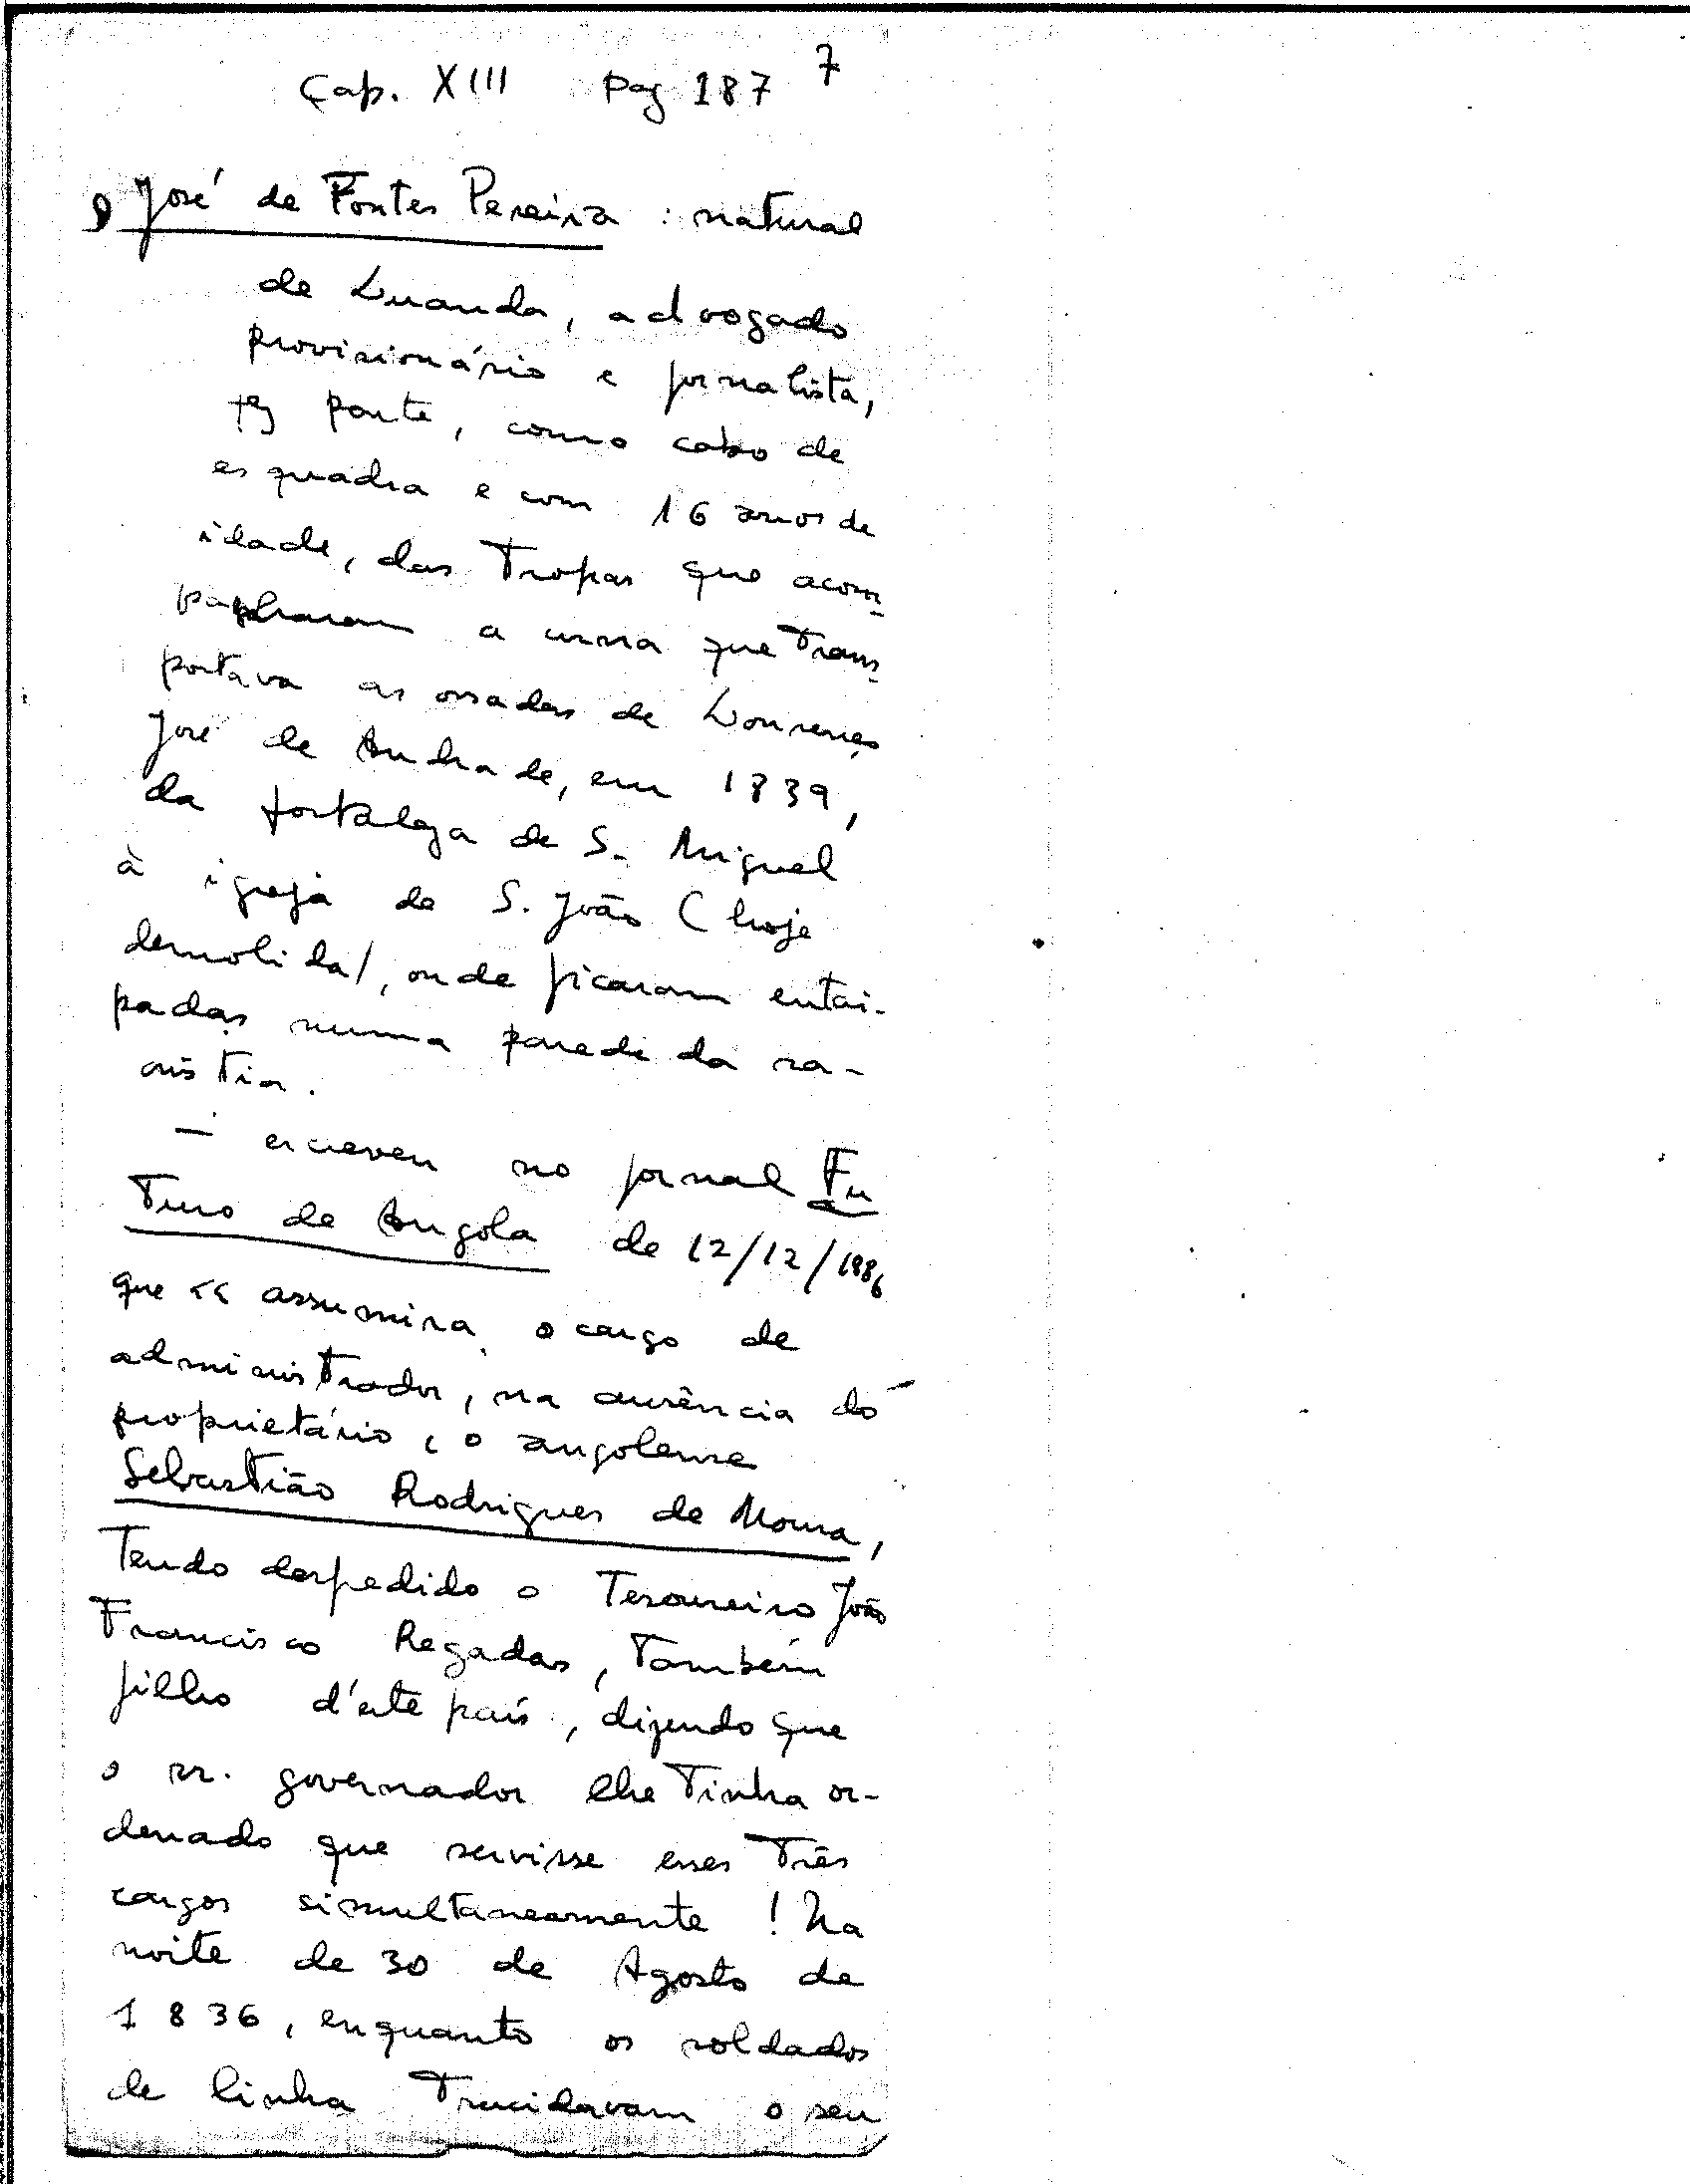 Cap. XIII Pag 187 7
José de Fontes Pereira : natural
de Luanda, advogado
provisionário e jornalista,
fez parte, como cabo de
esquadra e com 16 anos de
idade, das Tropas que acom-
panharam a urna que Trans-
portava as ossadas de Lourenço
José de Andrade, em 1839,
da fortaleza de S. Miguel
à igreja de S. João (hoje
demolida), onde ficaram entai-
padas numa parede da sa-
cristia.
– escreveu no jornal Fu
Turo de Angola de 12/12/1886
que << assumira o cargo de
administrador, na ausência do
proprietário, o angolense
Sebastião Rodrigues de Moura,
Tendo despedido o Tesoureiro João
Francisco Regadas, Também
filho d'este país, dizendo que
o sr. governador lhe Tinha or-
denado que servisse esses Três
cargos simultaneamente ! Na
noite de 30 de Agosto de
1836, enquanto os soldados
de linha Trucidavam o seu